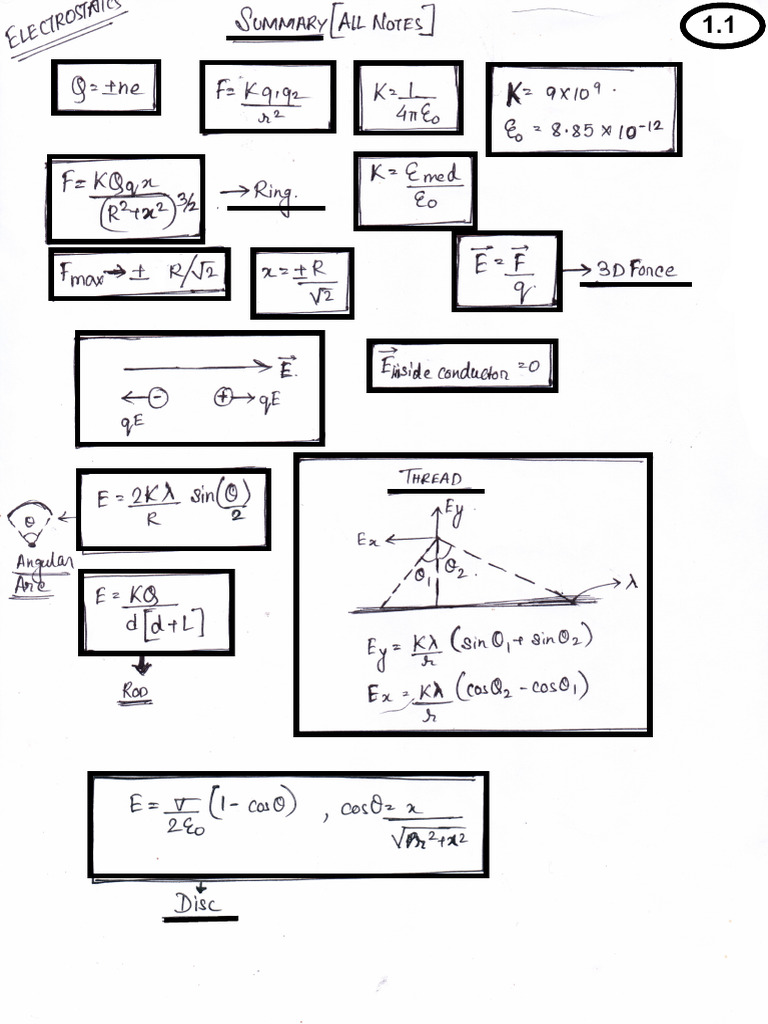 ELECTROSTATICS
SUMMARY [ALL NOTES]
1.1
Q = ±ne
F = Kq₁q₂/r²
K = 1/4πε₀
K = 9×10⁹.
ε₀ = 8.85 × 10⁻¹²
F = KQqx/(R²+x²)^3/2 → Ring.
K = εmed/ε₀
Fmax → ± R/√2
x = ±R/√2
E⃗ = F⃗/q → 3D Force
E⃗.
− + qE
qE
E⃗inside conductor = 0
E = 2Kλ/R sin(θ/2)
θ
Angular
Arc
E = KQ/d[d+L]
ROD
THREAD
Ey
Ex
θ₁ θ₂.
λ
Ey = Kλ/r (sinθ₁ + sinθ₂)
Ex = Kλ/r (cosθ₂ − cosθ₁)
E = σ/2ε₀ (1 − cosθ) , cosθ = x/√r²+x²
Disc